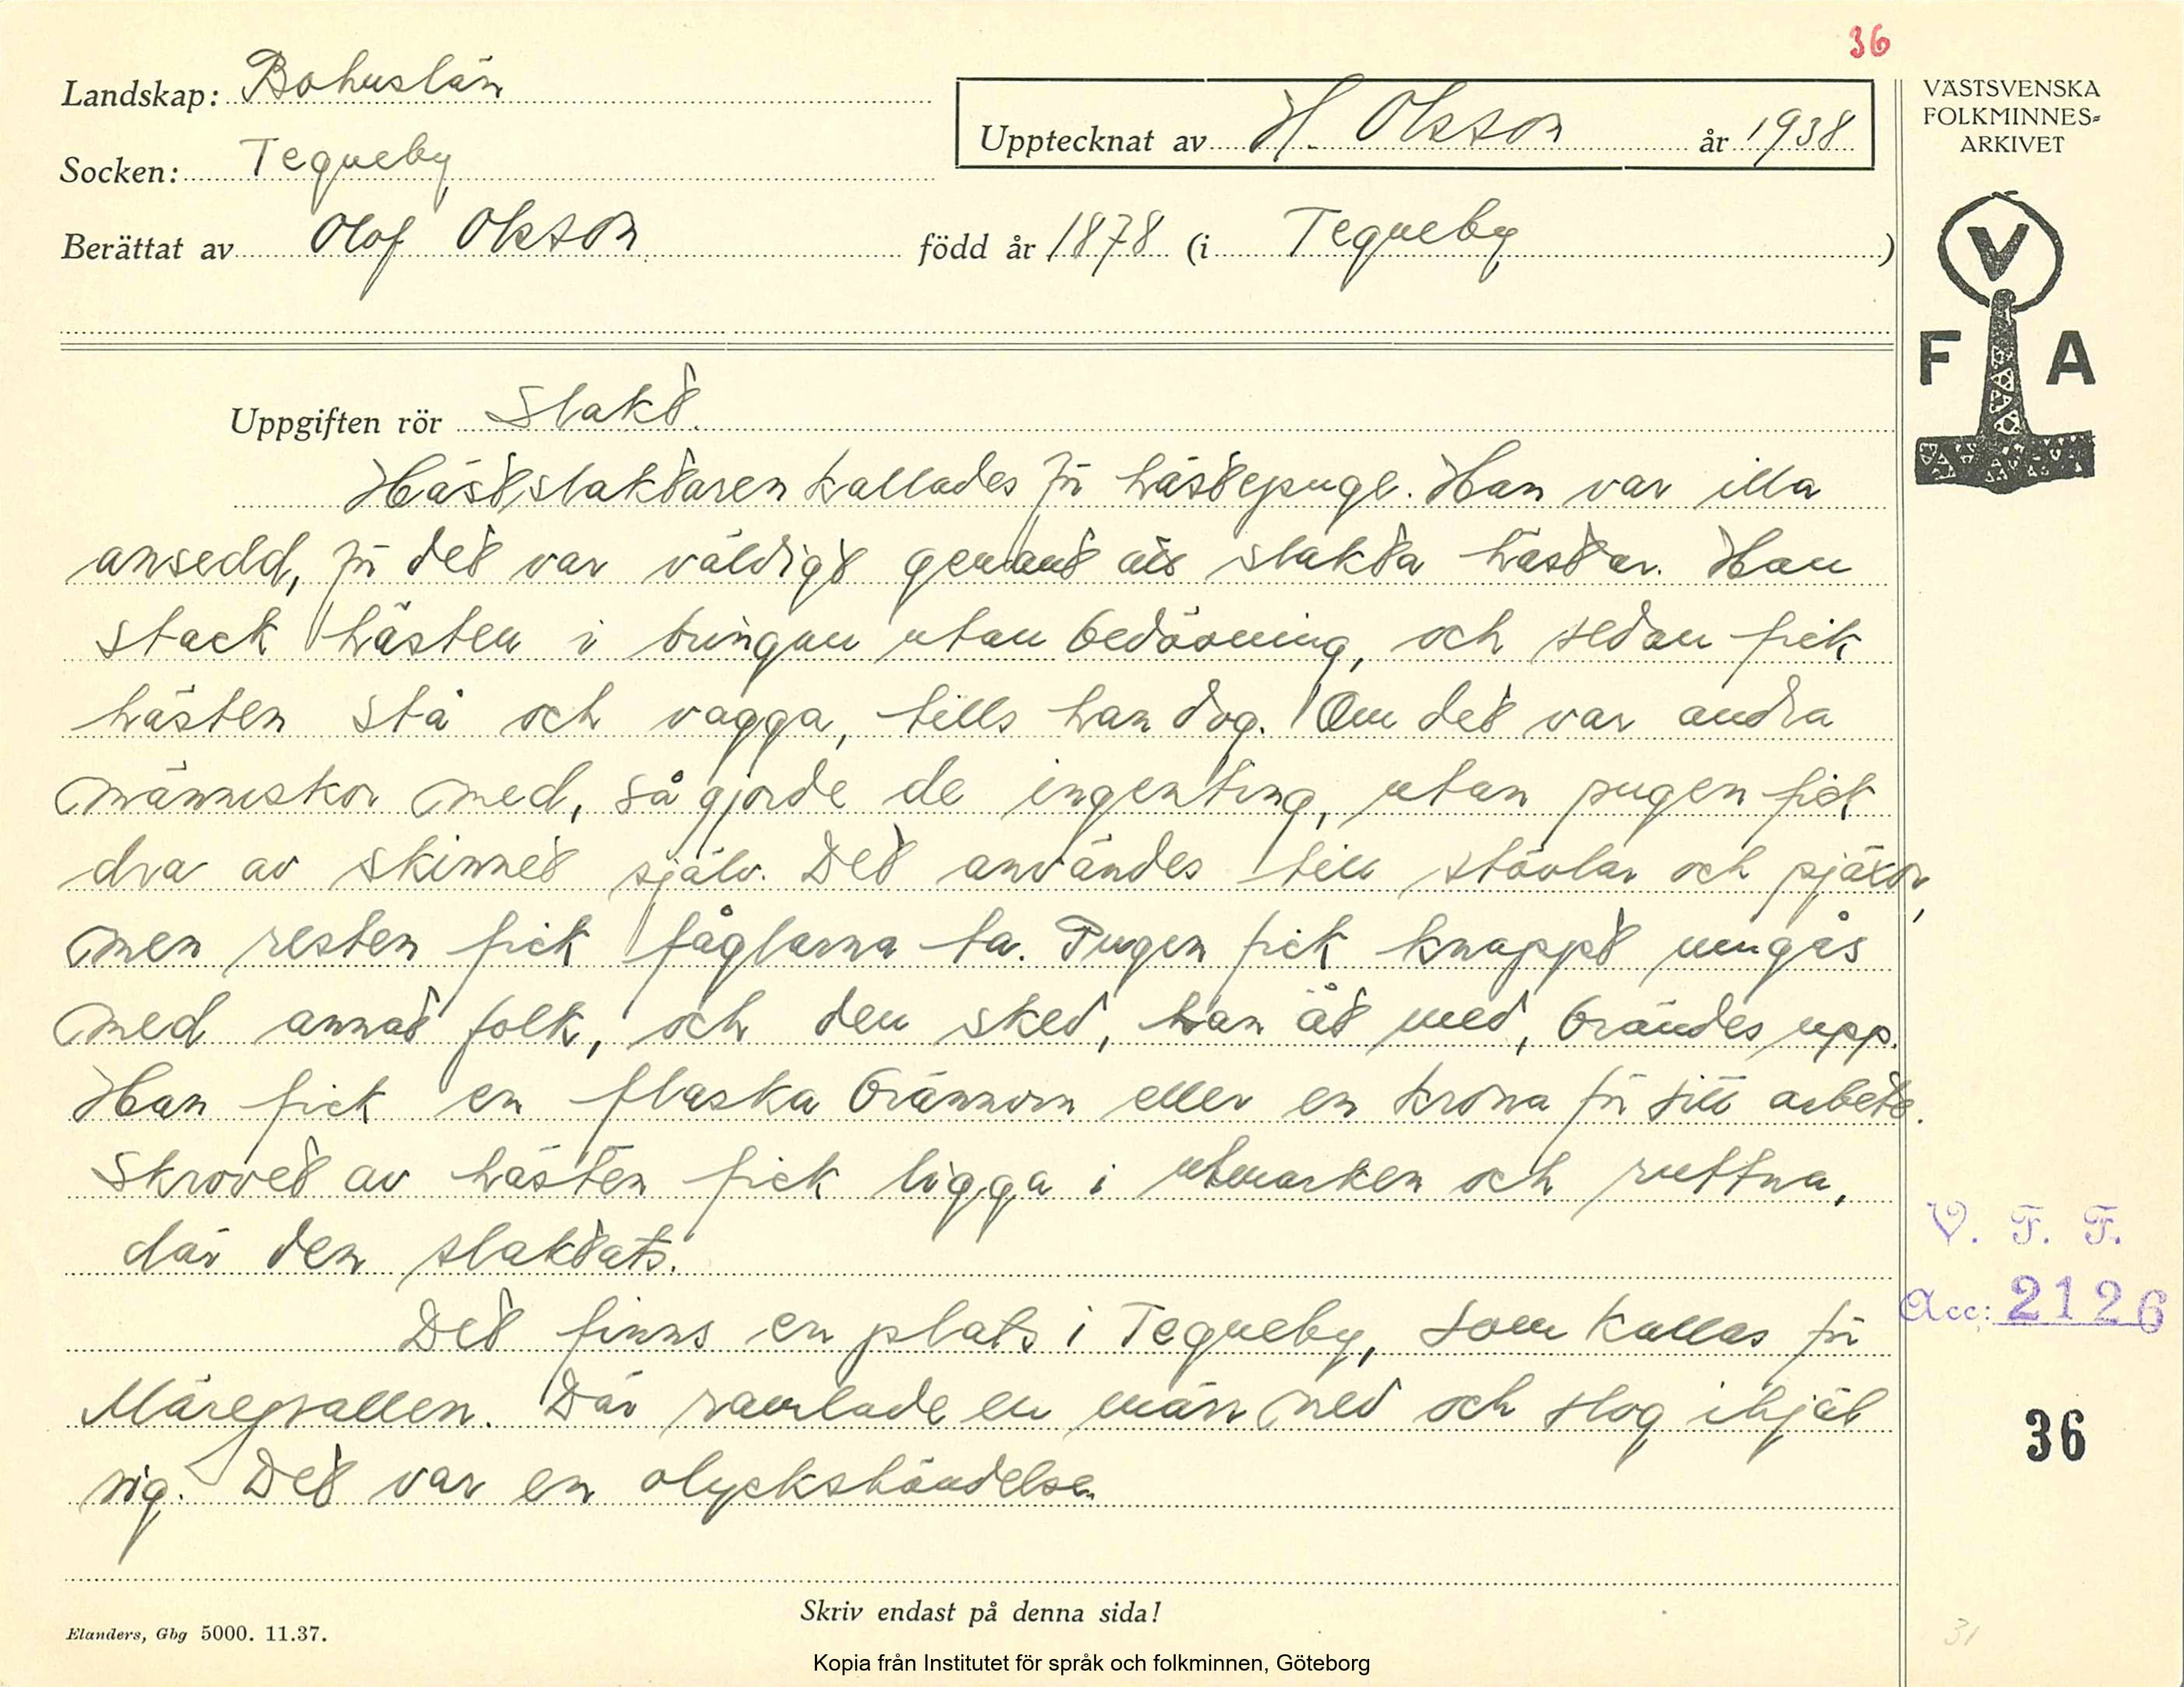 36
Landskap: Bohuslän
Socken: Tegneby
Berättat av Olof Olsson född år 1878 (i Tegneby)
Upptecknat av H. Olsson år 1938
VÄSTSVENSKA
FOLKMINNES-
ARKIVET
V
F A
Uppgiften rör Slakt.
Hästslaktaren kallades för hästepuge. Han var illa
ansedd, för det var väldigt genant att slakta hästar. Han
stack hästen i bringan utan bedövning, och sedan fick
hästen stå och vagga, tills han dog. Om det var andra
människor med, så gjorde de ingenting, utan pugen fick
dra av skinnet själv. Det användes till stövlar och pjäxor,
men resten fick fåglarna ta. Pugen fick knappt umgås
med annat folk, och den sked, han åt med, brändes upp.
Han fick en flaska brännvin eller en krona för sitt arbete.
Skrovet av hästen fick ligga i utmarken och ruttna,
där den slaktats.
Det finns en plats i Tegneby, som kallas för
Märegvallen. Där ramlade en märr ned och slog ihjäl
sig. Det var en olyckshändelse.
V. F. F.
Acc: 2126
36
Skriv endast på denna sida!
Elanders, Gbg 5000. 11.37.
31
Kopia från Institutet för språk och folkminnen, Göteborg